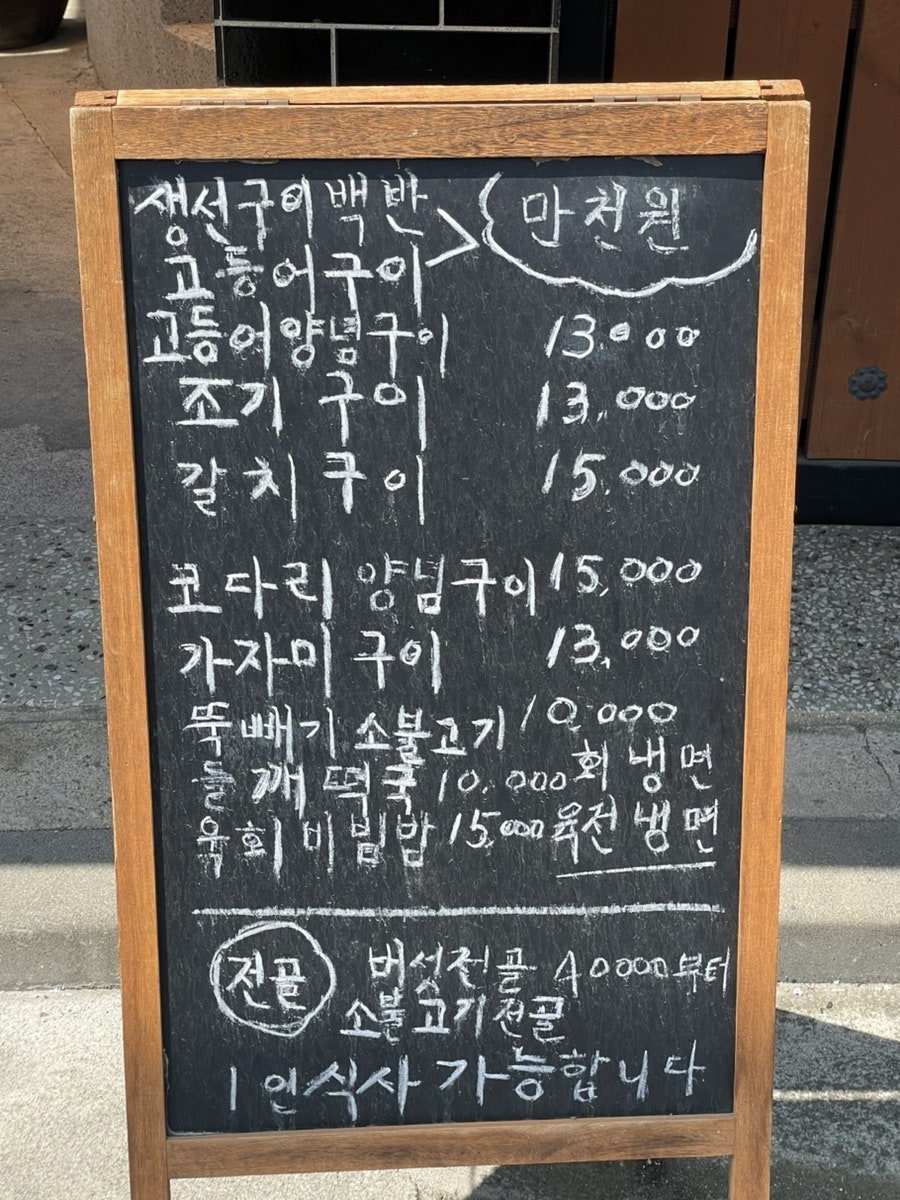 생선구이백반 > 만천원
고등어구이
고등어양념구이 13000
조기 구이 13,000
갈치구이 15,000
코다리 양념구이 15,000
가자미 구이 13,000
뚝빼기 소불고기 10,000
들깨떡국 10,000 회냉면
육회비빔밥 15,000 육전냉면
전골 버섯전골 40000부터
소불고기전골
1인식사가능합니다